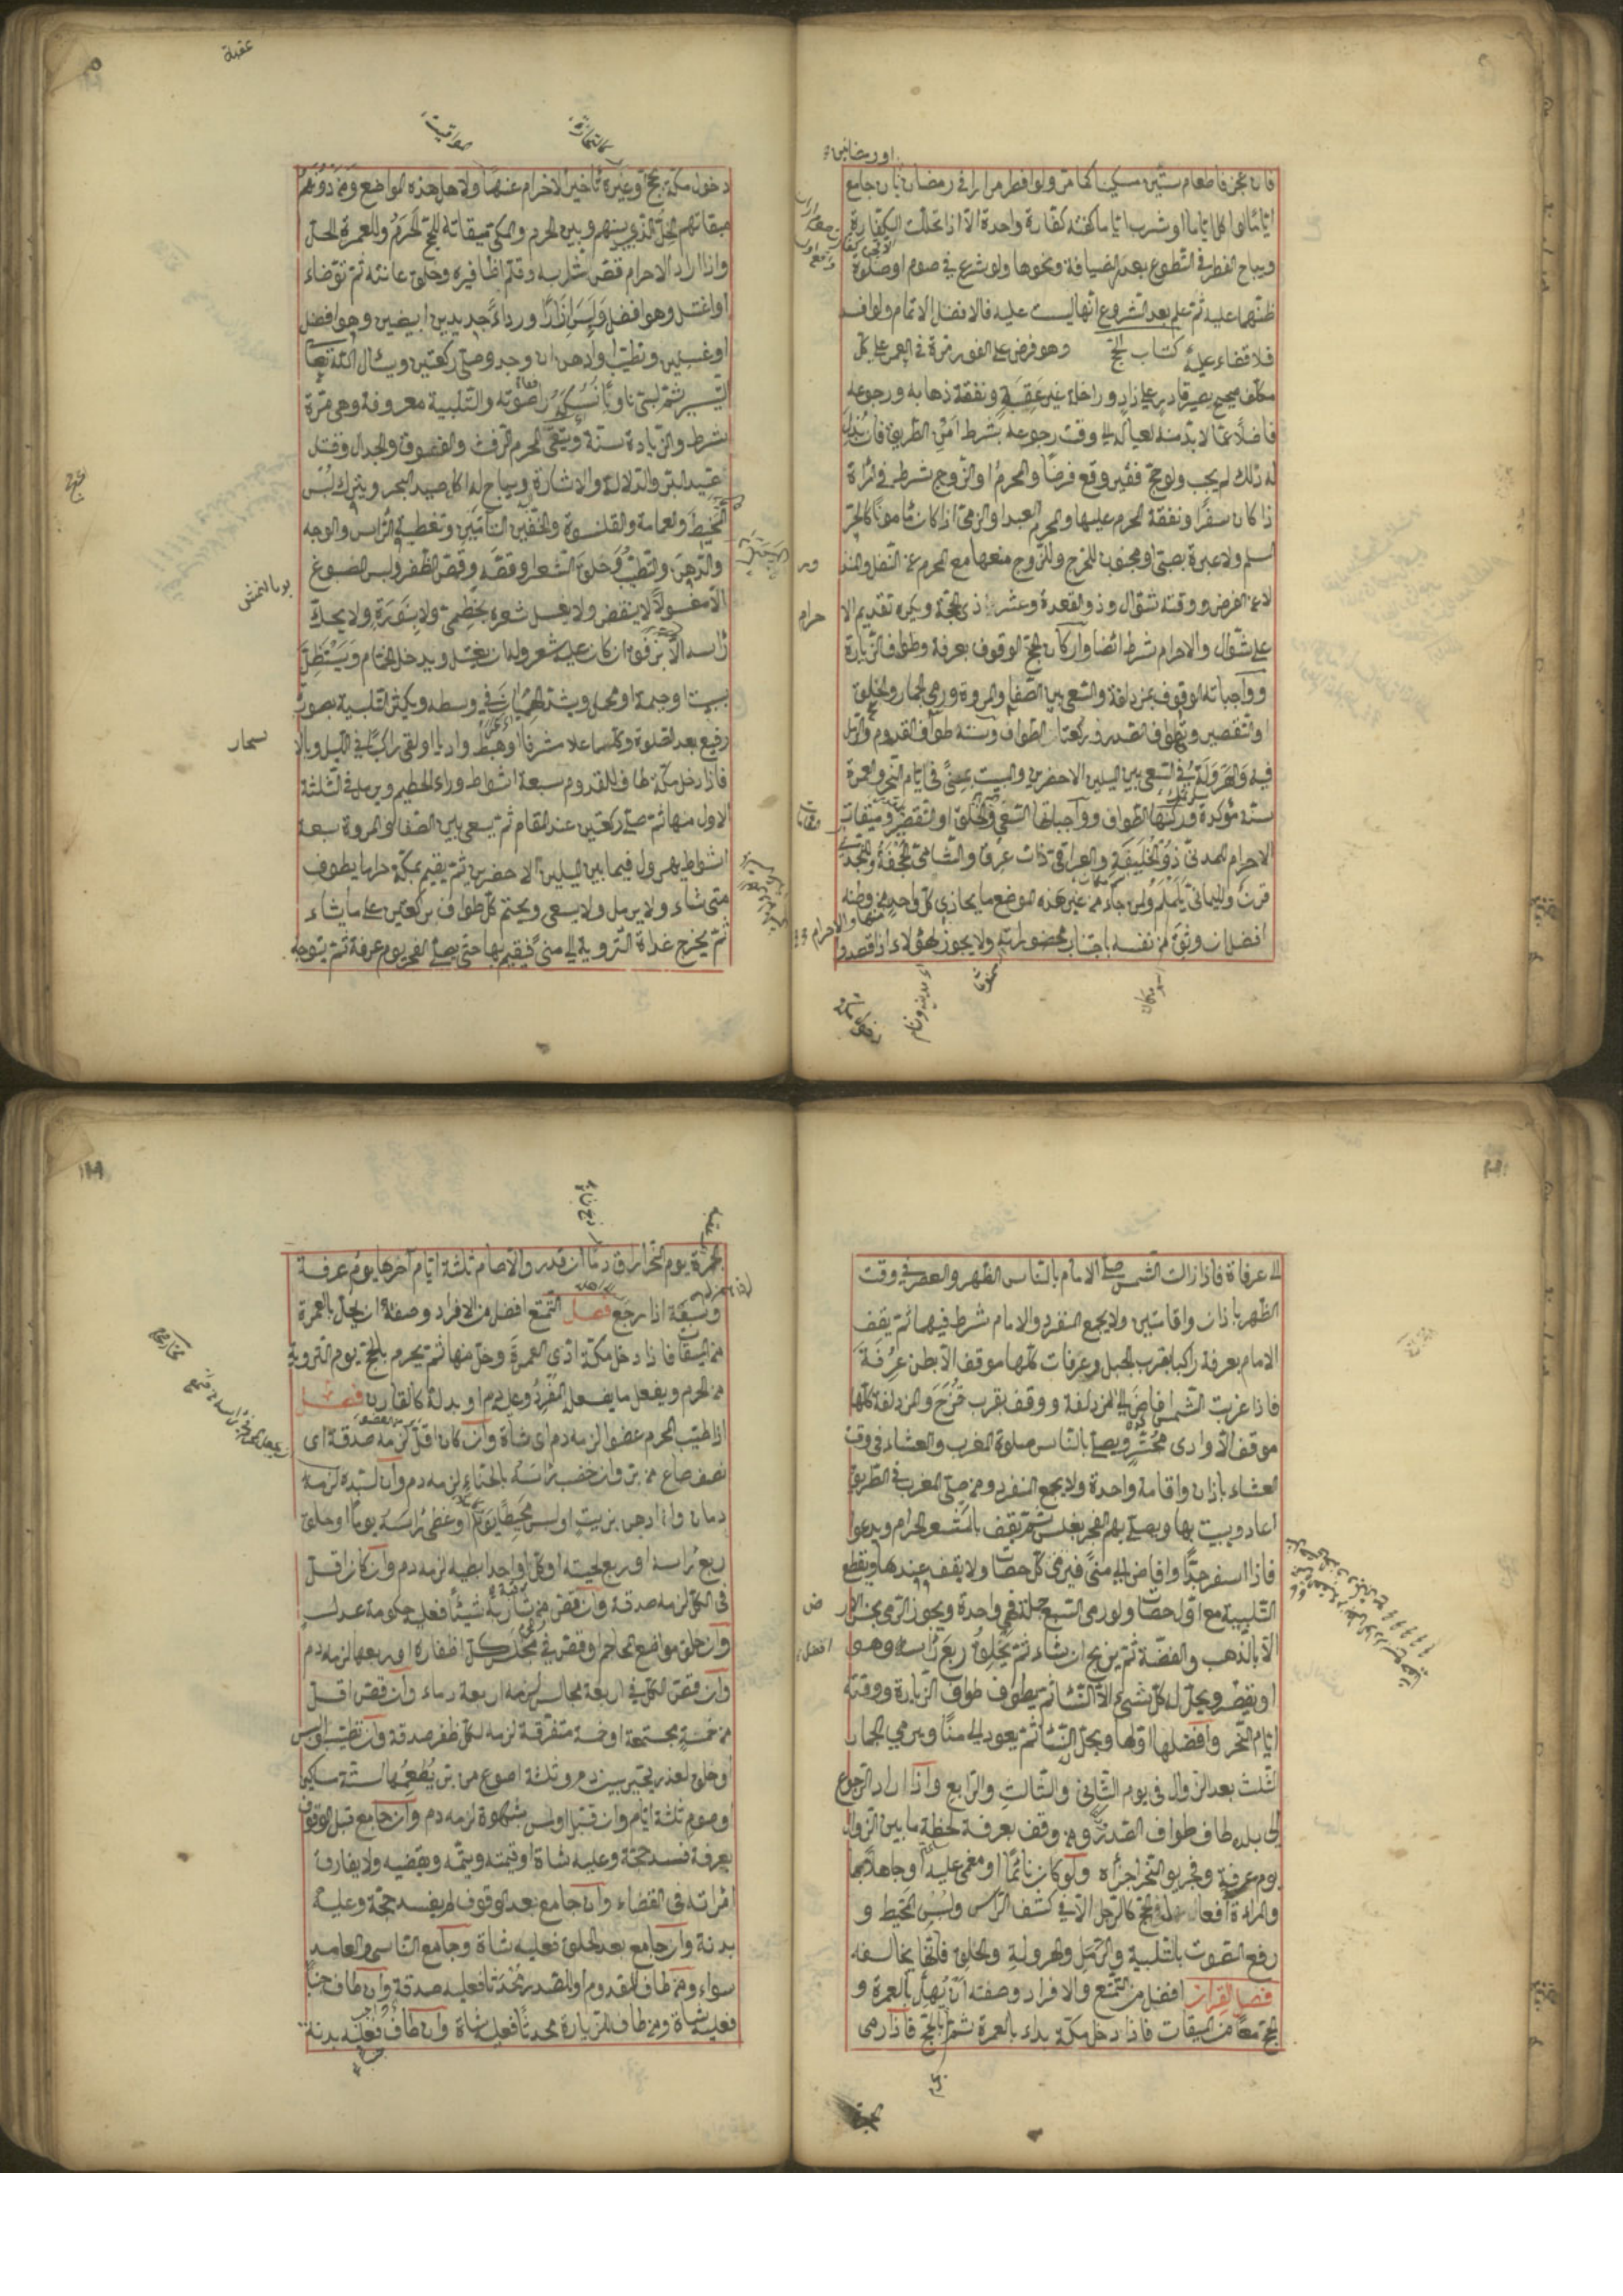 فان عجز فاطعام ستين مسكينا كما مر ولو افطر مرارا في رمضان بان جامع
اياما او اكل اياما او شرب اياما كفته كفارة واحدة الا اذا تخللت الكفارة
ويباح الفطر في التطوع بعذر الضيافة ونحوها ولو شرع في صوم او صلوة
ظنهما عليه ثم علم بعد الشروع انها ليست عليه فالافضل الاتمام ولو افسد
فلا قضاء عليه كتاب الحج وهو فرض على الفور مرة في العمر على كل
مكلف صحيح بصير قادر على زاد وراحلة غير عقبة ونفقة ذهابه ورجوعه
فاضلا عما لا بد منه لعياله الى وقت رجوعه بشرط امن الطريق فان بذل
له ذلك لم يجب ولو حج فقير وقع فرضا والمحرم او الزوج شرط في المراة
اذا كان سفرا ونفقة المحرم عليها والمحرم العبد او الذمي اذا كان مامونا كالحر
المسلم ولا عبرة بصبي او مجنون للتحرج وللزوج منعها مع المحرم عن النفل والنذر
لا عن الفرض ووقته شوال وذو القعدة وعشر ذي الحجة ويكره تقديم الا
حرام
على شوال والاحرام شرط ايضا واركان الحج الوقوف بعرفة وطواف الزيارة
وواجباته الوقوف بمزدلفة والسعي بين الصفا والمروة ورمي الجمار والحلق
او التقصير وطواف الصدر وركعتا الطواف وسنته طواف القدوم والرمل
فيه والهرولة في السعي بين الميلين الاخضرين والمبيت بمنى في ايام النحر والعمرة
سنة مؤكدة وركنها الطواف وواجباتها السعي والحلق او التقصير وميقات
الاحرام للمدني ذو الحليفة والعراقي ذات عرق والشامي الجحفة والنجدي
قرن واليماني يلملم ولمن جاء من غير هذه المواضع ما يحاذي كل واحد منها والاحرام من وطنه
افضل ان وثق من نفسه باجتناب محظوراته ولا يجوز لهؤلاء اذا قصدوا
عقبة
مواقيت
دخول مكة بحج وغيره تاخير الاحرام عنها ولاهل هذه المواضع ومن دونهم
ميقاتهم الحل الذي بينهم وبين الحرم والمكي ميقاته للحج الحرم وللعمرة الحل
واذا اراد الاحرام قص شاربه وقلم اظافيره وحلق عانته ثم توضاء
او اغتسل وهو افضل ولبس ازارا ورداء جديدين ابيضين وهو افضل
او غسيلين وتطيب وادهن ان وجد وصلى ركعتين ويسأل الله تعالى
التيسير ثم لبى ناويا نسكه رافعا صوته والتلبية معروفة وهي مرة
شرط والزيادة سنة ويتقي المحرم الرفث والفسوق والجدال وقتل
صيد البر والدلالة والاشارة ويباح له اكل صيد البحر ويترك لبس
المخيط والعمامة والقلنسوة والخفين التامين وتغطية الراس والوجه
والدهن والتطيب وحلق الشعر وقصه وقص الظفر ولبس المصبوغ
الا مغسولا لا ينفض ولا يغسل شعره بخطمي ولا بسدرة ولا يحك
راسه الا برفق ان كان عليه شعر وله ان يغتسل ويدخل الحمام ويستظل
ببيت او خيمة او محمل ويشد الهميان في وسطه ويكثر التلبية بصوت
رفيع بعد الصلوة وكلما علا شرفا او هبط واديا او لقى راكبا في الليل وبالا
سحار
فاذا دخل مكة طاف للقدوم سبعة اشواط وراء الحطيم ويرمل في الثلثة
الاول منها ثم صلى ركعتين عند المقام ثم يسعى بين الصفا والمروة سبعة
اشواط يهرول فيما بين الميلين الاخضرين ثم يقيم بمكة حراما يطوف
متى شاء ولا يرمل ولا يسعى ويختم كل طواف بركعتين على ما يشاء
ثم يخرج غداة التروية الى منى فيقيم بها حتى يصلي الفجر يوم عرفة ثم يتوجه
الى عرفاة فاذا زالت الشمس صلى الامام بالناس الظهر والعصر في وقت
الظهر باذان واقامتين ولا يجمع المنفرد والامام شرط فيهما ثم يقف
الامام بعرفة راكبا بقرب الجبل وعرفات كلها موقف الا بطن عرفة
فاذا غربت الشمس افاض الى المزدلفة ووقف بقرب قزح والمزدلفة كلها
موقف الا وادى محسر ويصلي بالناس صلوة المغرب والعشاء في وقت
العشاء باذان واقامة واحدة ولا يجمع المنفرد ومن صلى المغرب في الطريق
اعاد ويبيت بها ويصلي بهم الفجر بغلس ثم يقف بالمشعر الحرام ويدعوا
فاذا اسفر جدا وافاض الى منى فيرمي كل حصاة ولا يقف عندها ويقطع
التلبية مع اول حصاة ولو رمى السبع جملة فهي واحدة ويجوز الرمي بجنس الار
ض
الا بالذهب والفضة ثم يذبح ان شاء ثم يحلق ربع راسه وهو
افضل
او يقصر ويحل له كل شيء الا النساء ثم يطوف طواف الزيارة ووقته
ايام النحر وافضلها اولها ويحل النساء ثم يعود الى منا ويرمي الجمار
الثلث بعد الزوال في يوم الثاني والثالث والرابع واذا اراد الرجوع
الى بلده طاف طواف الصدر ومن وقف بعرفة لحظة ما بين الزوال
يوم عرفة وفجر يوم النحر اجزأه ولو كان نائما او مغمى عليه او جاهلا بها
والمراة افعال الحج كالرجل الا في كشف الراس ولبس المخيط و
رفع الصوت بالتلبية والرمل والهرولة والحلق فانها يخالفه
فصل القران افضل من التمتع والافراد وصفته ان يهل بالعمرة و
الحج معا من الميقات فاذا دخل مكة بداء بالعمرة ثم بالحج فاذا رمى
الجمرة يوم النحر اراق دما ان قدر والا صام ثلثة ايام آخرها يوم عرفة
وسبعة اذا رجع فصل التمتع افضل من الافراد وصفته ان يهل بالعمرة
من الميقات فاذا دخل مكة ادى العمرة وحل منها ثم يحرم بالحج يوم التروية
من الحرم ويفعل ما يفعل المفرد وعليه دم او بدله كالقارن فصل
اذا طيب المحرم عضوا لزمه دم اى شاة وان كان اقل لزمه صدقة اى
نصف صاع من بر وان خضب راسه بالحناء لزمه دم وان لبده لزمه
دمان وان ادهن بزيت او لبس مخيطا يوما او غطى راسه يوما او حلق
ربع راسه او ربع لحيته او كل واحد ابطيه لزمه دم وان كان اقل
في الكل لزمه صدقة وان قص من شاربه شيئا فعليه حكومة عدل
وان حلق مواضع المحاجم او قص في مجلس كل اظفاره او ربعها لزمه دم
وان قص الكل في اربعة مجالس لزمه اربعة دماء وان قص اقل
من خمسة مجتمعة او خمسة متفرقة لزمه لكل ظفر صدقة وان تطيب او لبس
او حلق لعذر يخير بين دم وثلثة اصوع من بر يطعمها ستة مساكين
او صوم ثلثة ايام وان قبل او لمس بشهوة لزمه دم وان جامع قبل الوقوف
بعرفة فسد حجه وعليه شاة او قيمته ويتمه ويقضيه ولا يفارق
امراته في القضاء وان جامع بعد الوقوف لم يفسد حجه وعليه
بدنة وان جامع بعد الحلق فعليه شاة وجامع الناسي والعامد
سواء ومن طاف للقدوم او للصدر محدثا فعليه صدقة وان طاف جنبا
فعليه شاة ومن طاف للزيارة محدثا فعليه شاة وان طاف فعليه بدنة